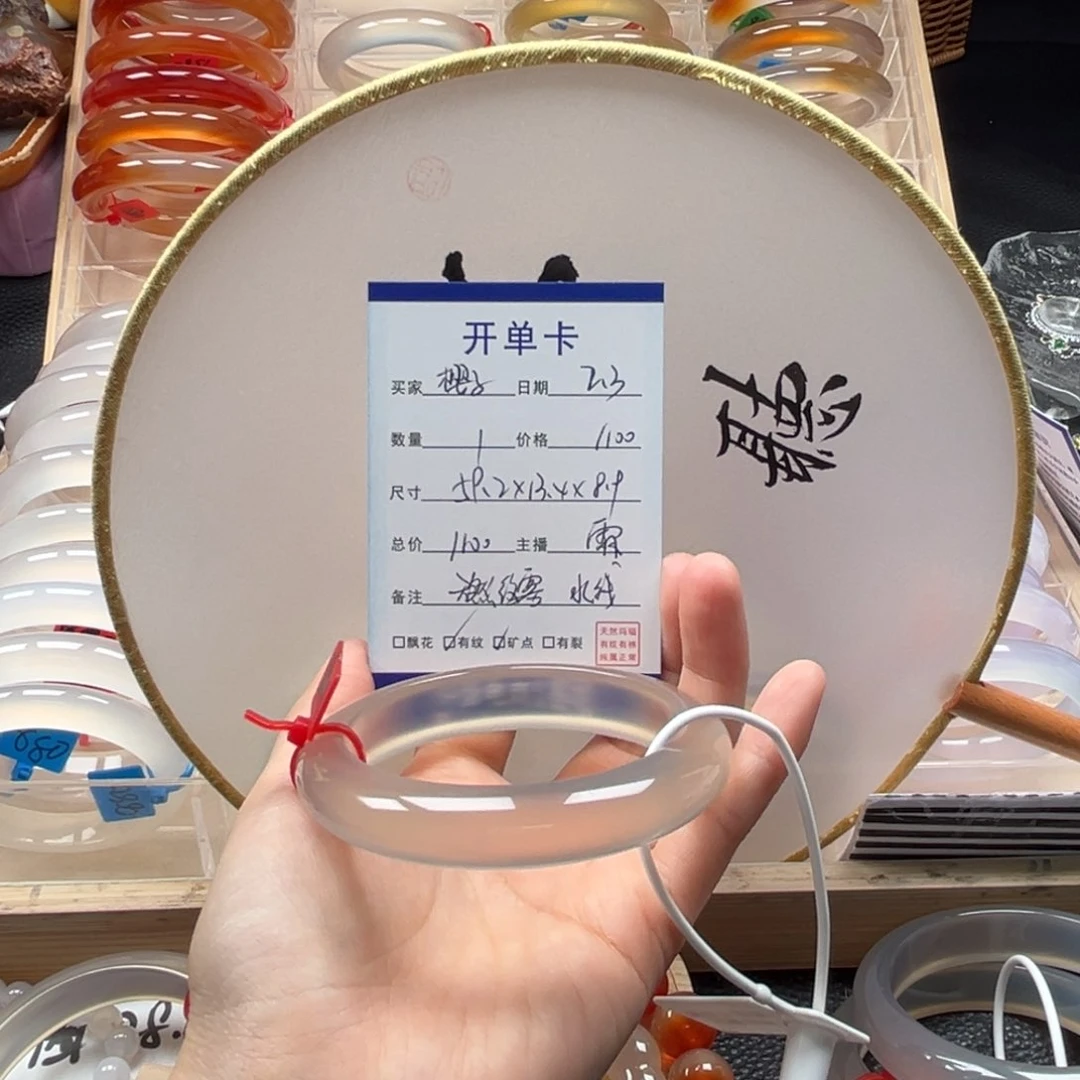 开单卡
买家 桃子 日期 2.3
数量 1 价格 1100
尺寸 59.2×13.4×8.9
总价 1100 主播
备注 水线
□飘花 ☑有纹 ☑矿点 □有裂
天然玛瑙
有纹有棉
均属正常
聽